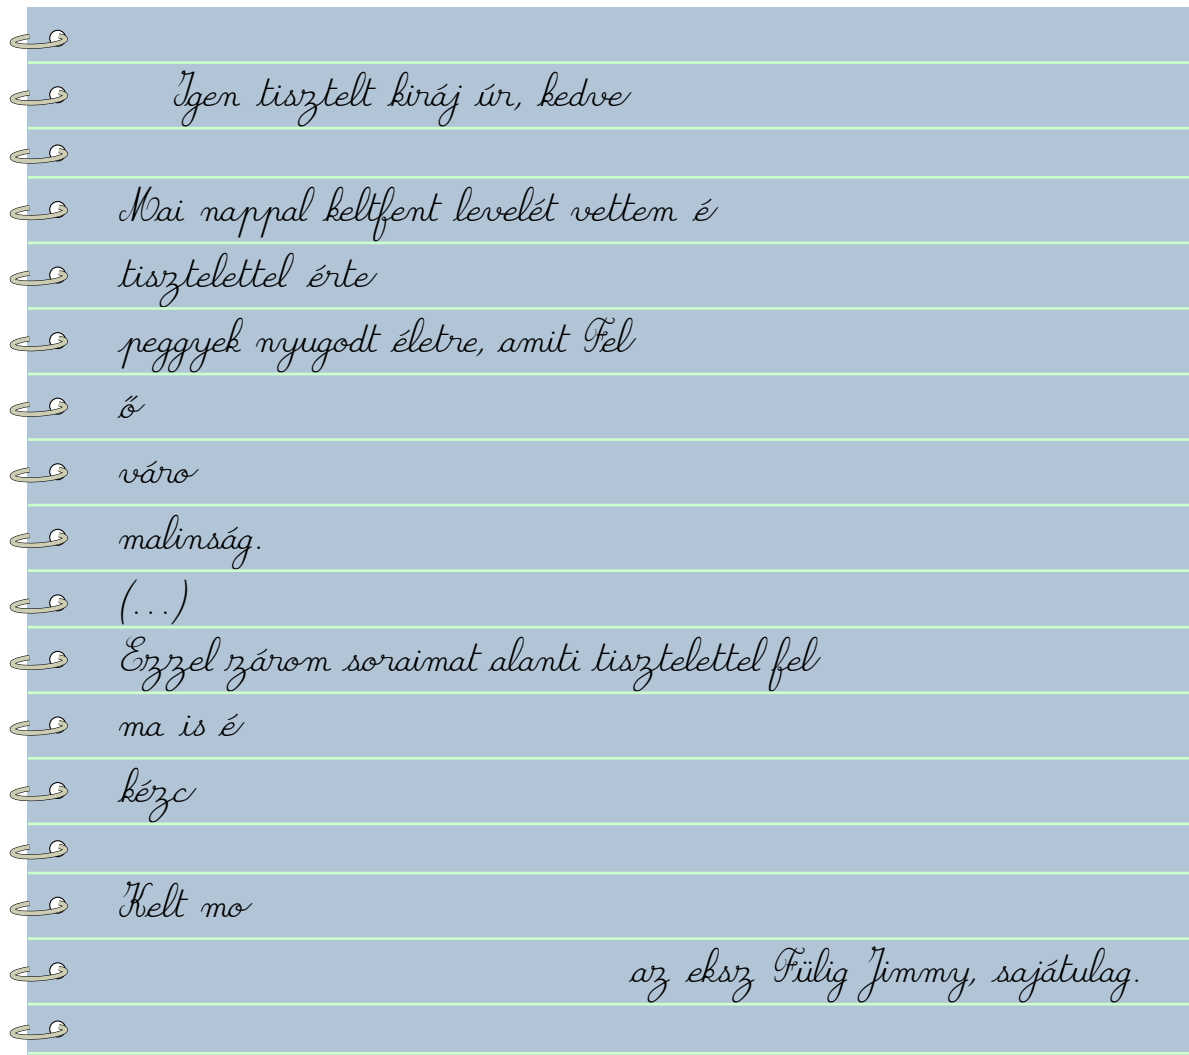 Igen tisztelt kiráj úr, kedve
Mai nappal keltfent levelét vettem é
tisztelettel érte
peggyek nyugodt életre, amit Fel
ő
váro
malinság.
(...)
Ezzel zárom soraimat alanti tisztelettel fel
ma is é
kézc
Kelt mo
az eksz Fülig Jimmy, sajátulag.